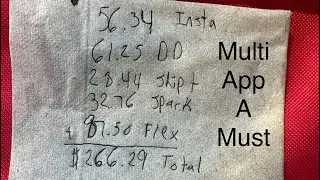 56.34 Insta
61.25 DD
28.44 Shipt
32.76 Spark
+ 87.50 Flex
$266.29 Total
Multi
App
A
Must